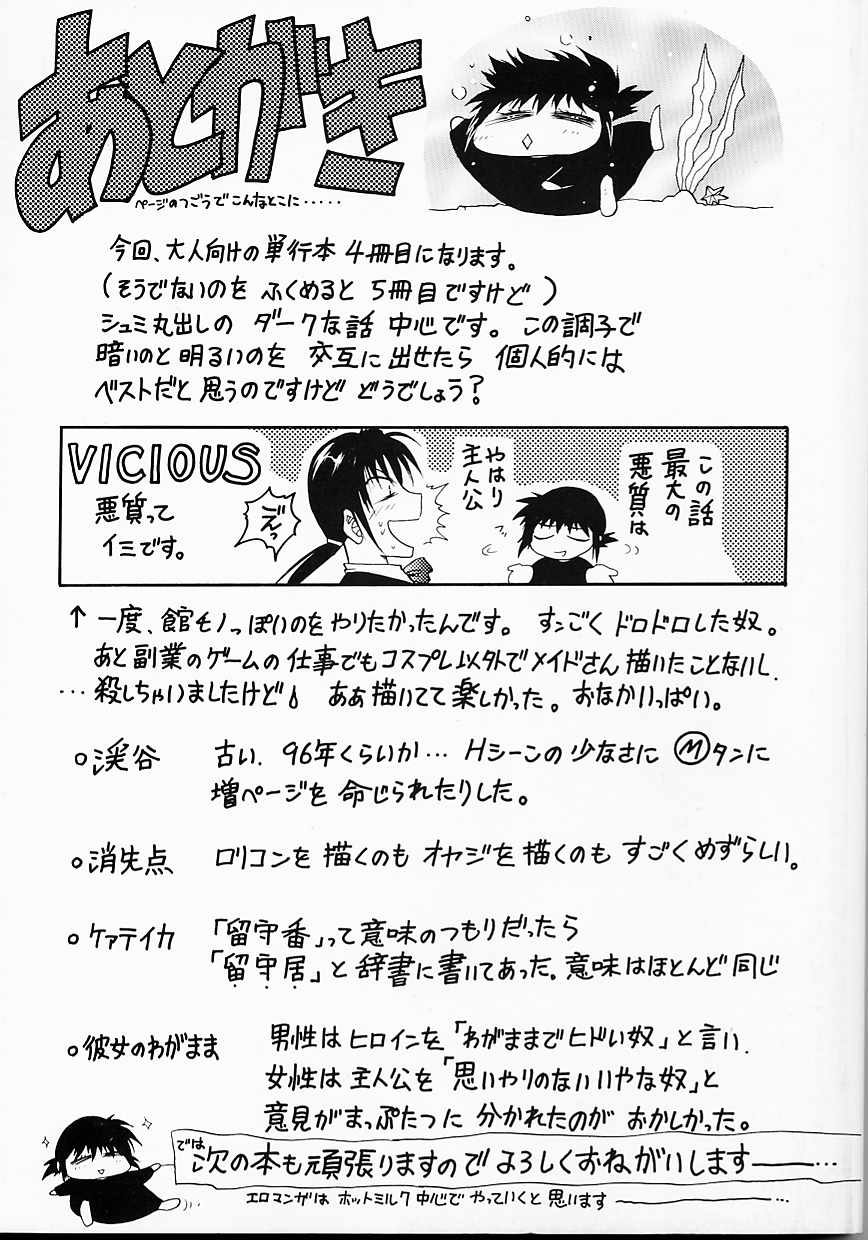 あとがき
ページのつごうでこんなとこに・・・・・
今回、大人向けの単行本 4冊目になります。
(そうでないのを ふくめると 5冊目ですけど)
シュミ丸出しの ダークな話 中心です。この調子で
暗いのと 明るいのを 交互に出せたら 個人的には
ベストだと 思うのですけど どうでしょう?
VICIOUS
悪質って
イミです。
この話
最大の
悪質は
やはり
主人公
ぐえっ
↑ 一度、館モノっぽいのを やりたかったんです。 すンごく ドロドロした奴。
あと 副業のゲームの 仕事でも コスプレ以外で メイドさん 描いたことないし.
…殺しちゃいましたけど ああ 描いてて 楽しかった。おなかいっぱい。
○渓谷 古い. 96年くらいか… Hシーンの 少なさに Ⓜタンに
増ページを 命じられたりした。
○消失点 ロリコンを 描くのも オヤジを 描くのも すごくめずらしい。
○ケァテイカ 「留守番」って 意味の つもりだったら
「留守居」と 辞書に 書いてあった。意味は ほとんど 同じ
○彼女のわがまま 男性は ヒロインを「わがままで ヒドい 奴」と 言い.
女性は 主人公を「思いやりのない いやな 奴」と
意見が まっぷたつに 分かれたのが おかしかった。
では 次の本も頑張りますので よろしくおねがいします———…
エロマンガは ホットミルク 中心で やっていくと 思います———…